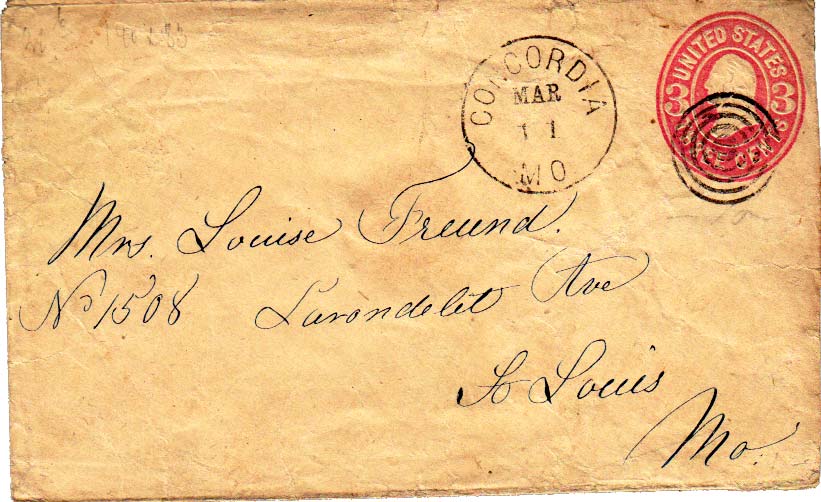 UNITED STATES
3 3
THREE CENTS
CONCORDIA
MAR
11
MO
Mrs. Louise Freund.
No 1508 Carondelet Ave
St Louis
Mo.